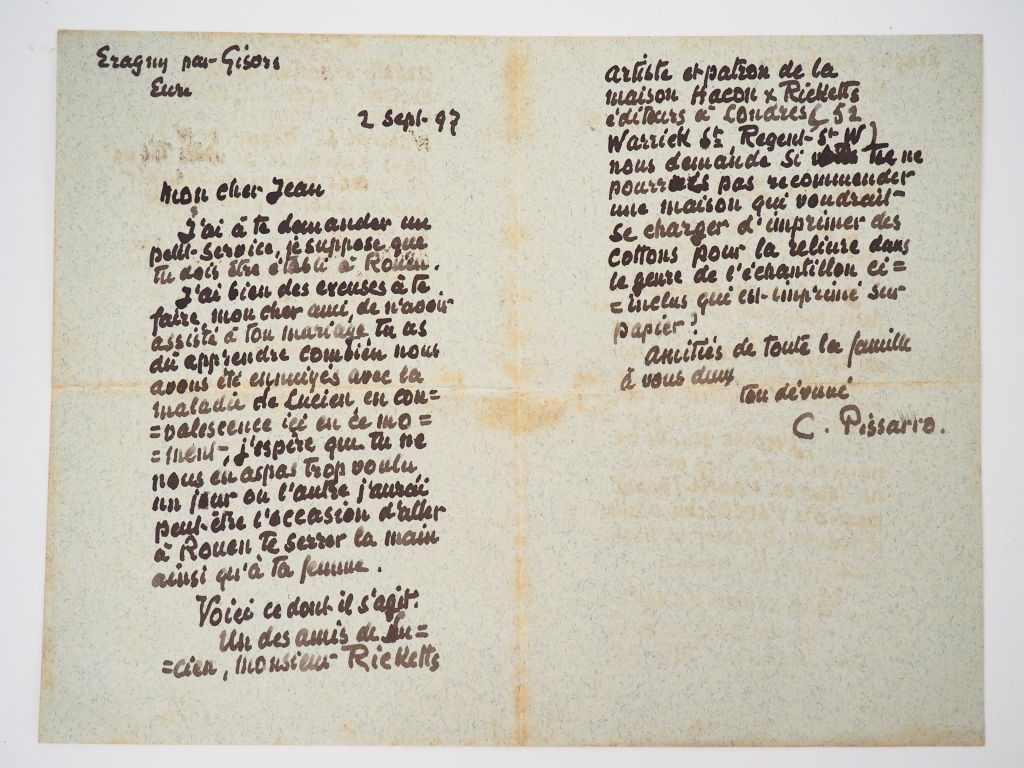 Eragny par Gisors
Eure
2 Sept. 97
Mon cher Jean
J'ai à te demander un
petit service, je suppose que
tu dois être établi à Rouen.
J'ai bien des excuses à te
faire, mon cher ami, de n'avoir
assisté à ton mariage, tu as
dû apprendre combien nous
avons été ennuiyés avec la
maladie de Lucien en con=
=valescence ici en ce mo=
=ment, j'espère que tu ne
nous en as pas trop voulu
un jour ou l'autre j'aurai
peut-être l'occasion d'aller
à Rouen te serrer la main
ainsi qu'à ta femme.
Voici ce dont il s'agit.
Un des amis de Lu=
=cien, Monsieur Ricketts
artiste et patron de la
maison Hacon & Ricketts
éditeurs à Londres (52
Warrick St. Regent St W)
nous demande si tu ne
pourrais pas recommender
une maison qui voudrait
se charger d'imprimer des
cottons pour la reliure dans
le genre de l'échantillon ci=
=inclus qui est imprimé sur
papier?
Amitiés de toute la famille
à vous deux
ton dévoué
C. Pissarro.